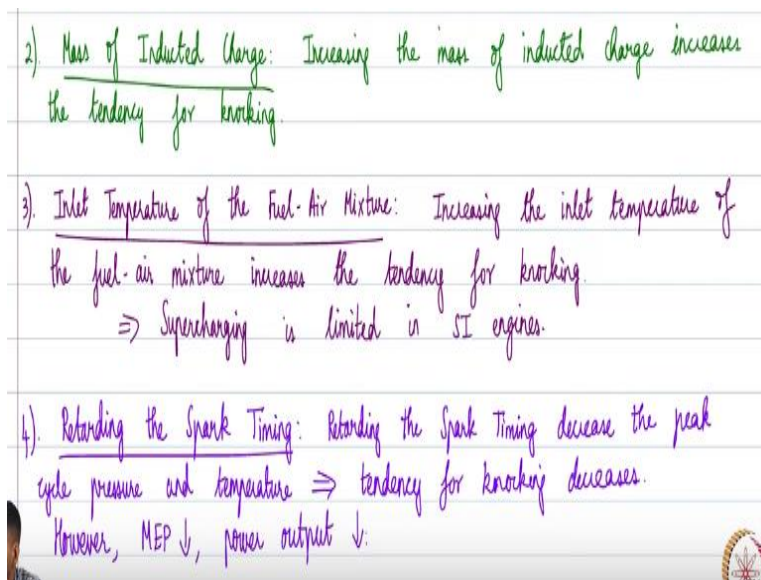 2). Mass of Inducted Charge: Increasing the mass of inducted charge increases
the tendency for knocking.
3). Inlet Temperature of the Fuel-Air Mixture: Increasing the inlet temperature of
the fuel-air mixture increases the tendency for knocking.
⇒ Supercharging is limited in SI engines.
4). Retarding the Spark Timing: Retarding the Spark Timing decrease the peak
cycle pressure and temperature ⇒ tendency for knocking decreases.
However, MEP ↓, power output ↓.